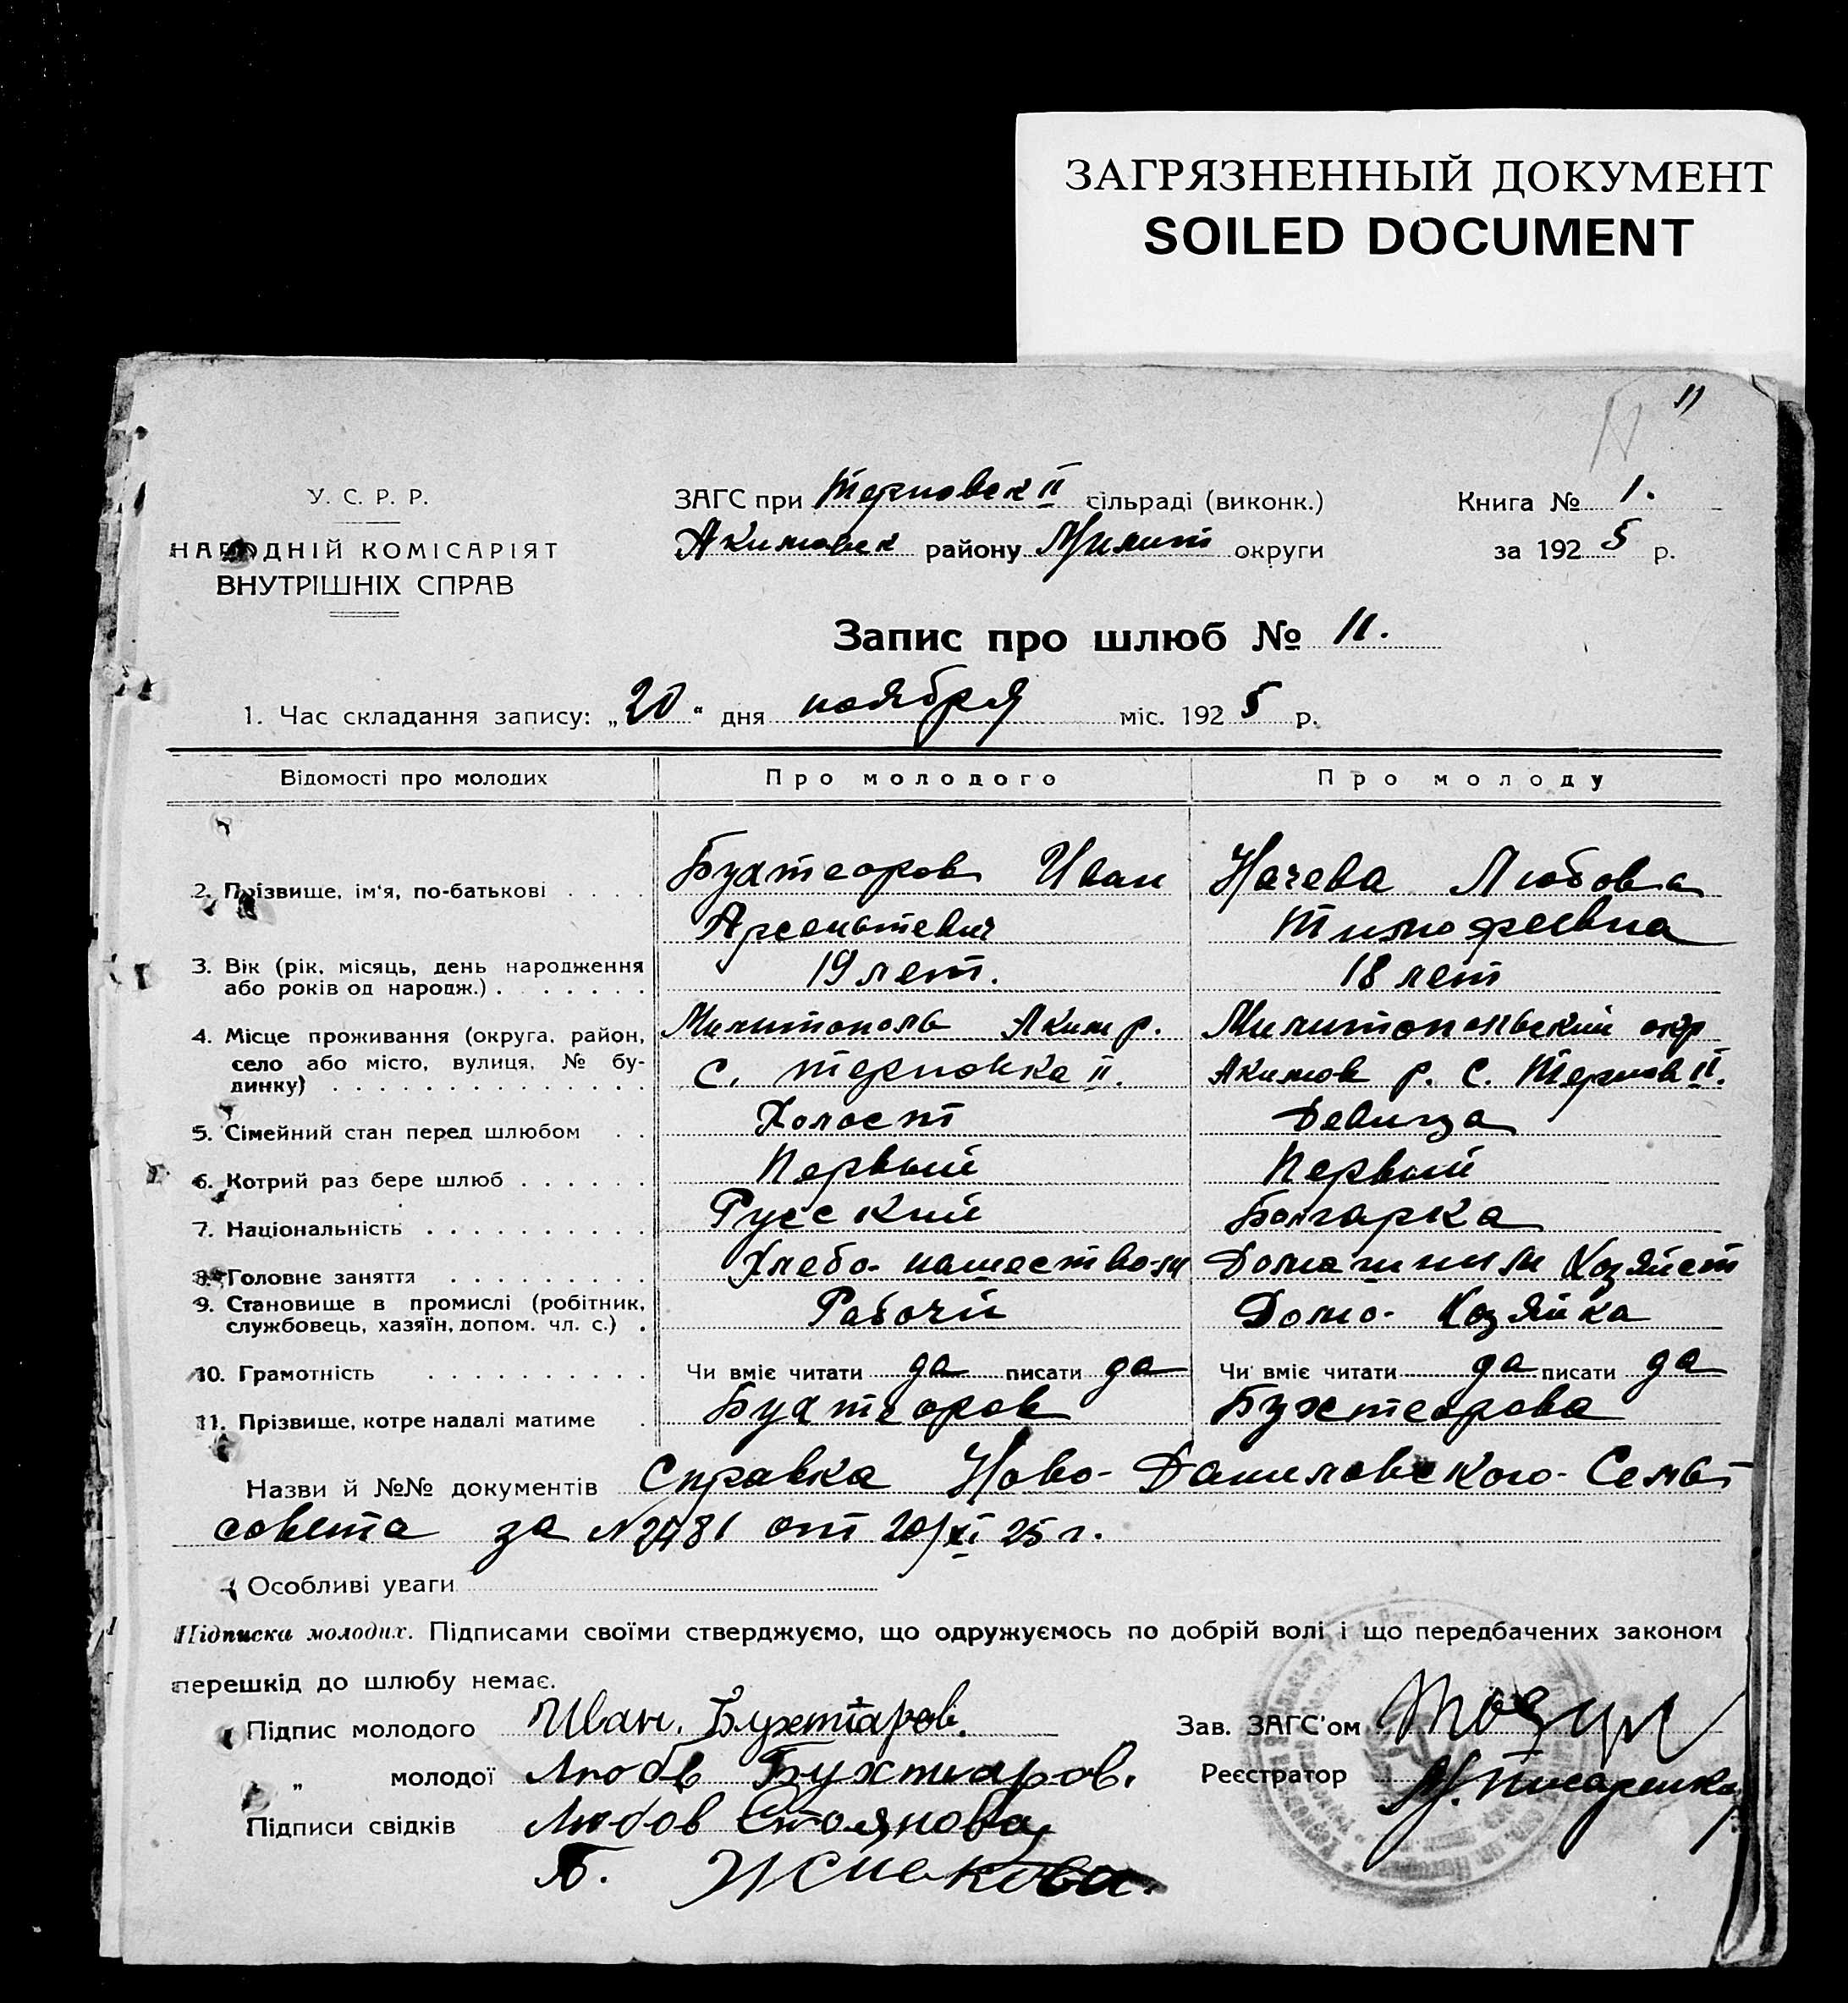 ЗАГРЯЗНЕННЫЙ ДОКУМЕНТ
SOILED DOCUMENT
11
У. С. Р. Р.
НАРОДНІЙ КОМІСАРІЯТ
ВНУТРІШНІХ СПРАВ
ЗАГС при Терновск II сільраді (виконк.)
Акимовск району Мелит округи
Книга № 1.
за 1925 р.
Запис про шлюб № 11.
1. Час складання запису: „20“ дня ноября міс. 1925 р.
Відомості про молодих Про молодого Про молоду
2. Прізвище, ім'я, по-батькові . . . . Бухтеоров Иван Начева Любовь
Арсентьевич Тимофеевна
3. Вік (рік, місяць, день народження або років од народж.) . . . . . . . 19 лет. 18 лет
4. Місце проживання (округа, район, Мелитополь Аким р. Мелитопольский окр
село або місто, вулиця, № будинку) . . . . . . . . . . . . с. Терновка II. Акимов р. с. Тернов II.
5. Сімейний стан перед шлюбом . . Холост Девица
6. Котрий раз бере шлюб . . . . . . Первый Первый
7. Національність . . . . . . . . . . Русский Болгарка
8. Головне заняття . . . . . . . . . Хлебо-пашеством Домашним Хозяйст
9. Становище в промислі (робітник, службовець, хазяїн, допом. чл. с.) . Рабочий Домо-Хозяйка
10. Грамотність . . . . . . . . . . Чи вміє читати да писати да Чи вміє читати да писати да
11. Прізвище, котре надалі матиме . Бухтеоров Бухтеорова
Назви й №№ документів Справка Ново-Даниловского-Сель
совета за № 2481 от 20/XI 25 г.
Особливі уваги
Підписка молодих. Підписами своїми стверджуємо, що одружуємось по добрій волі і що передбачених законом
перешкід до шлюбу немає.
Підпис молодого Иван. Бухтіаров.
Зав. ЗАГС'ом
„ молодої Любовь Бухтиаров.
Реєстратор М. Писаренко
Підписи свідків Любов Стоянова